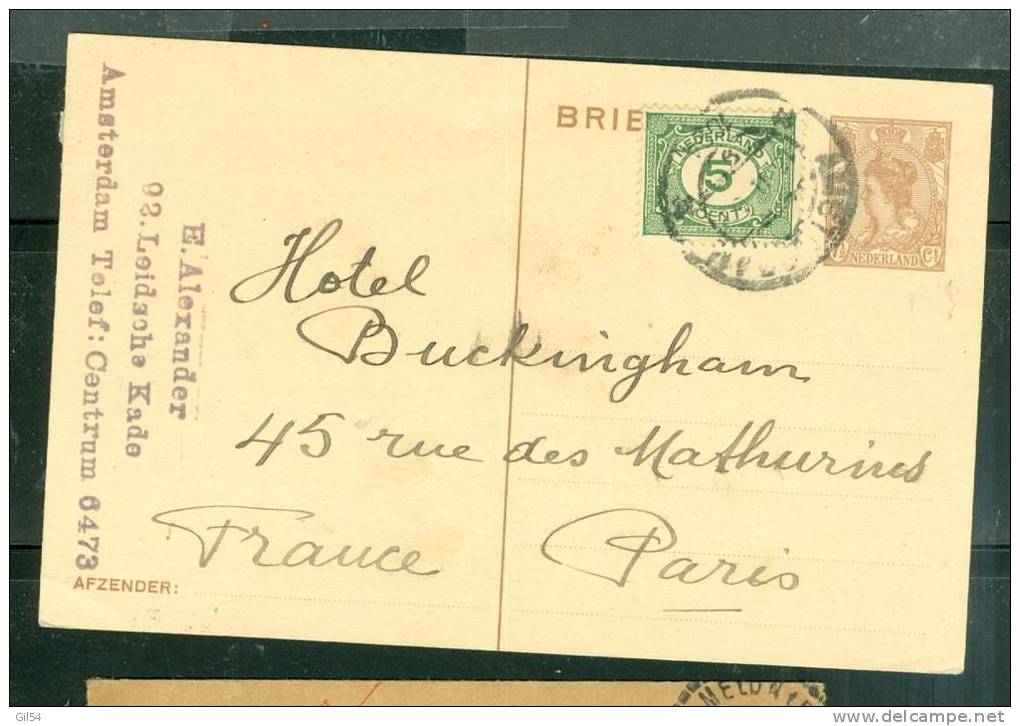 BRIE
NEDERLAND
5
CENT
7½ NEDERLAND Ct
E. Alexander
92. Leidsche Kade
Amsterdam Telef: Centrum 6473
Hotel
Buckingham
45 rue des Mathurins
France Paris
AFZENDER:
Gil54